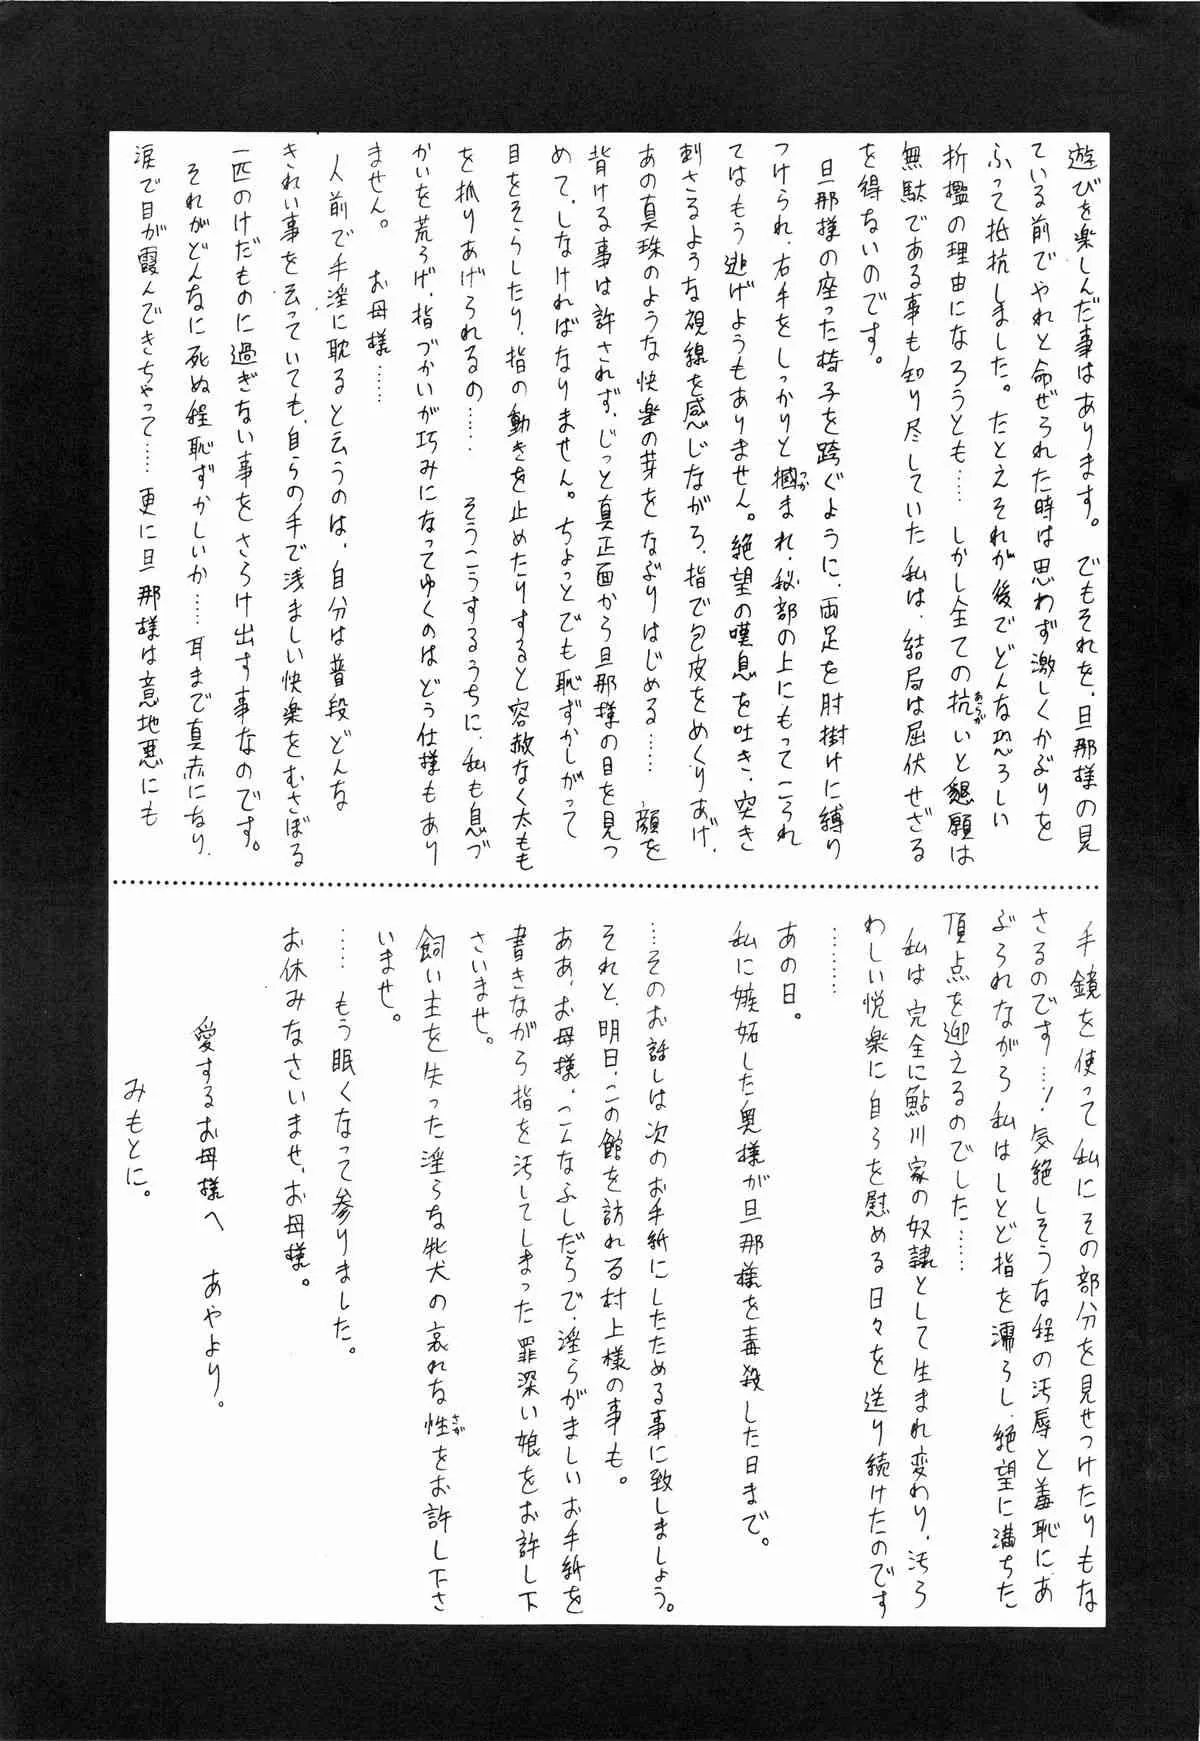 遊びを楽しんだ事はあります。でもそれを、旦那様の見
ている前でやれと命ぜられた時は思わず激しくかぶりを
ふって抵抗しました。たとえそれが後でどんな恐ろしい
折檻の理由になろうとも……しかし全ての抗いと懇願は
あらが
無駄である事も知り尽していた私は、結局は屈伏せざる
を得ないのです。
旦那様の座った椅子を跨ぐように、両足を肘掛けに縛り
つけられ、右手をしっかりと摑まれ、秘部の上にもってこられ
つか
てはもう逃げようもありません。絶望の嘆息を吐き、突き
刺さるような視線を感じながら、指で包皮をめくりあげ、
あの真珠のような快楽の芽をなぶりはじめる……　顔を
背ける事は許されず、じっと真正面から旦那様の目を見つ
めて、しなければなりません。ちょっとでも恥ずかしがって
目をそらしたり、指の動きを止めたりすると容赦なく太もも
を抓りあげられるの……　そうこうするうちに、私も息づ
かいを荒らげ、指づかいが巧みになってゆくのはどう仕様もあり
ません。　お母様……
人前で手淫に耽ると云うのは、自分は普段どんな
きれい事を云っていても、自らの手で浅ましい快楽をむさぼる
一匹のけだものに過ぎない事をさらけ出す事なのです。
それがどんなに死ぬ程恥ずかしいか……耳まで真赤になり、
涙で目が霞んできちゃって……更に旦那様は意地悪にも
手鏡を使って私にその部分を見せつけたりもな
さるのです…！気絶しそうな程の汚辱と羞恥にあ
ぶられながら私はしとど指を濡らし、絶望に満ちた
頂点を迎えるのでした……
私は完全に鮎川家の奴隷として生まれ変わり、汚ら
わしい悦楽に自らを慰める日々を送り続けたのです
………
あの日。
私に嫉妬した奥様が旦那様を毒殺した日まで。
…そのお話しは次のお手紙にしたためる事に致しましょう。
それと、明日、この館を訪れる村上様の事も。
ああ、お母様、こんなふしだらで、淫らがましいお手紙を
書きながら指を汚してしまった罪深い娘をお許し下
さいませ。
飼い主を失った淫らな牝犬の哀れな性をお許し下さ
さが
いませ。
……もう眠くなって参りました。
お休みなさいませ、お母様。
愛するお母様へ　あやより。
みもとに。